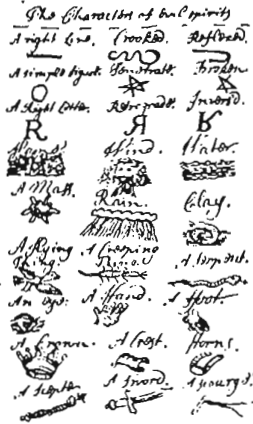 The Characters of Evil spirits
A right Line. Crooked. Reflexed.
A simple figure. Penetrate. Broken.
A Right Letter. Retrograde. Inversd.
R R R
Wind. Water.
A Mass. Rain. Clay.
A flying A Creeping
thing. A serpent.
An eye. A Hand. A Foot
A Crowne. A Crest. Horns.
A Scepter A Sword. A scourge.